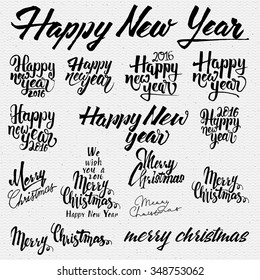 Happy New Year
Happy
new
year
2016
Happy
new year
2016
Happy
New
Year
Happy
New
year
Happy
new year
2016
Happy New
year
2016
Happy
new year
Merry
Christmas
We
wish
you a
2016
Merry
Christmas
Happy New Year
Merry
Christmas
Merry
Christmas
Merry
Christmas
Merry Christmas
merry christmas
shutterstock
IMAGE ID: 348753062
www.shutterstock.com